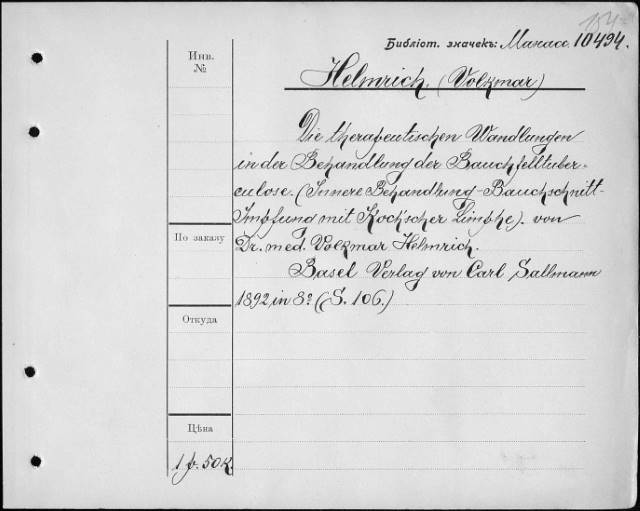 154
Библіот. значекъ: Манасс. 10494.
Инв.
№
Helmrich. (Volkmar)
Die therapeutischen Wandlungen
in der Behandlung der Bauchfelltuber-
culose. (Innere Behandlung-Bauchschnitt-
Impfung mit Kock'scher Limphe). von
По заказу
Dr. med. Volkmar Helmrich.
Basel Verlag von Carl Sallmann
1892, in 8º (S. 106.)
Откуда
Цѣна
1 р. 50 к.